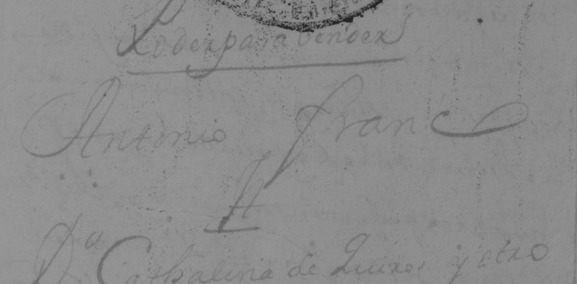 Poder para bender
Antonio Franc
A
D.ª Cathalina de Quiros y otro